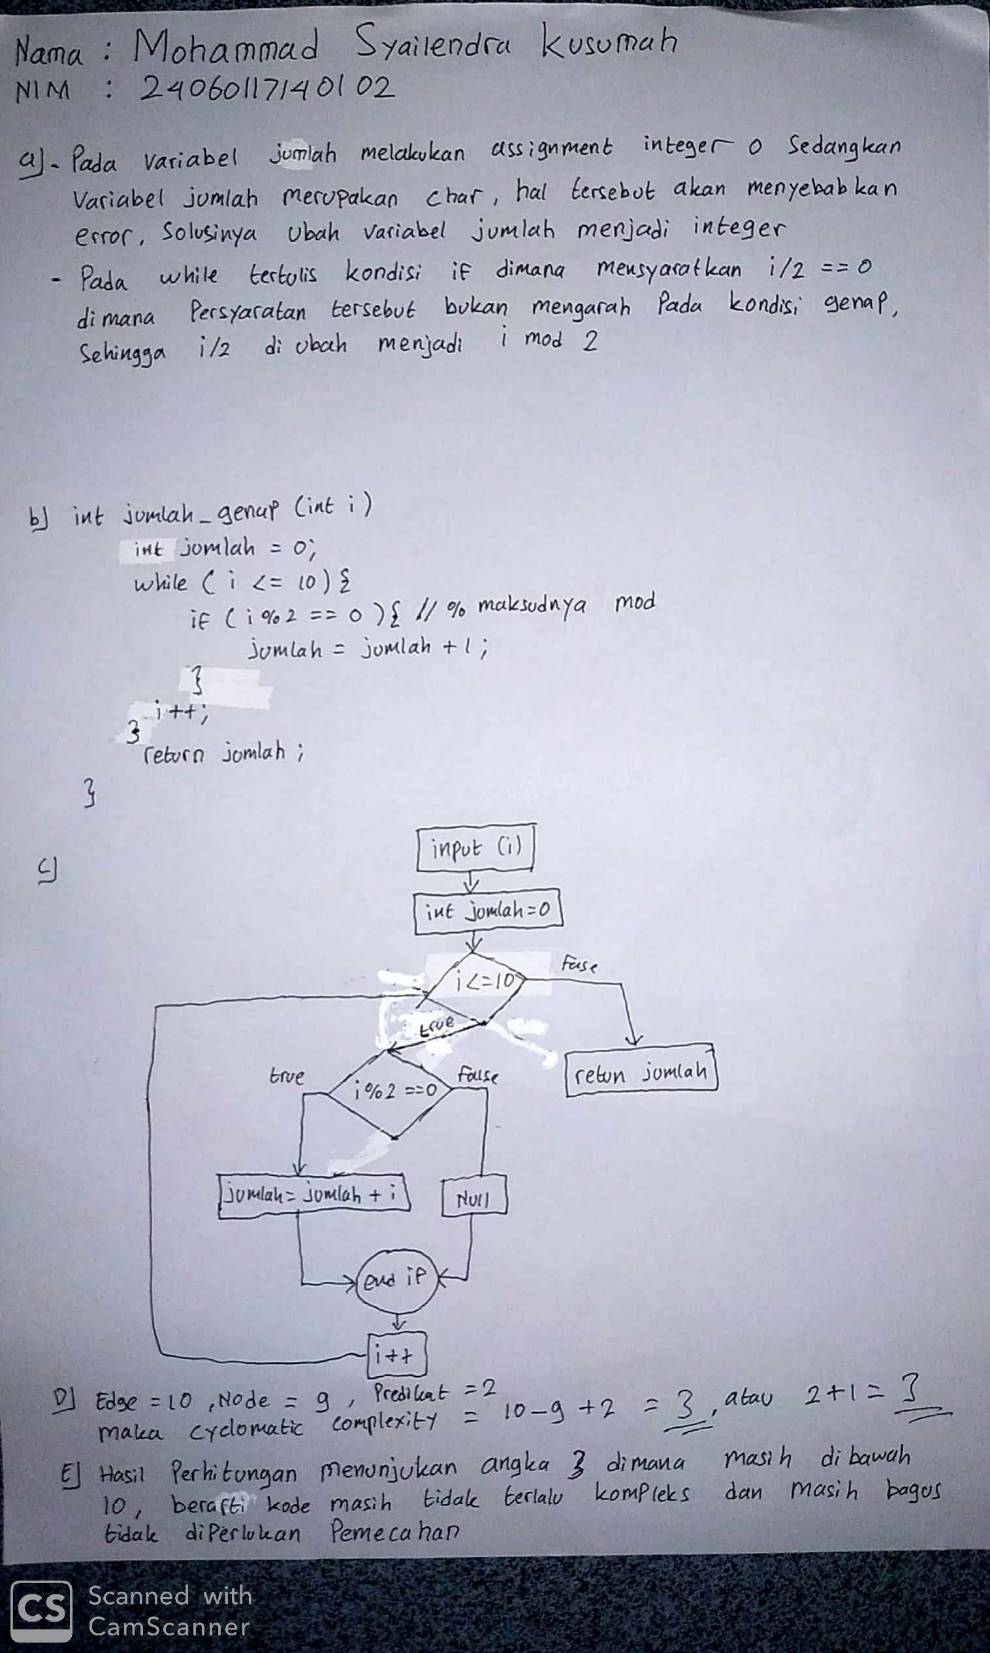 Nama : Mohammad Syailendra Kusumah
NIM : 24060117140102
a) - Pada variabel jumlah melakukan assignment integer 0 sedangkan
Variabel jumlah merupakan char, hal tersebut akan menyebabkan
error, Solusinya Ubah variabel jumlah menjadi integer
- Pada while tertulis kondisi if dimana mensyaratkan i/2 == 0
di mana Persyaratan tersebut bukan mengarah Pada kondisi genap,
Sehingga i/2 di ubah menjadi i mod 2
b) int jumlah_genap (int i)
int jumlah = 0;
while ( i <= 10 ) {
if ( i % 2 == 0 ) { // % maksudnya mod
jumlah = jumlah + 1;
}
i++;
}
return jumlah ;
}
c)
input (i)
int jumlah=0
i<=10
Fase
true
retun jumlah
true
i%2 ==0
false
jumlah= jumlah + i
Null
end if
i++
D) Edge = 10 , Node = 9 , Predikat = 2
maka cyclomatic complexity = 10-9 +2 = 3, atau 2+1 = 3
E) Hasil Perhitungan menunjukan angka 3 dimana masih di bawah
10, berarti kode masih tidak terlalu kompleks dan masih bagus
tidak diPerlukan Pemecahan
CS Scanned with
CamScanner